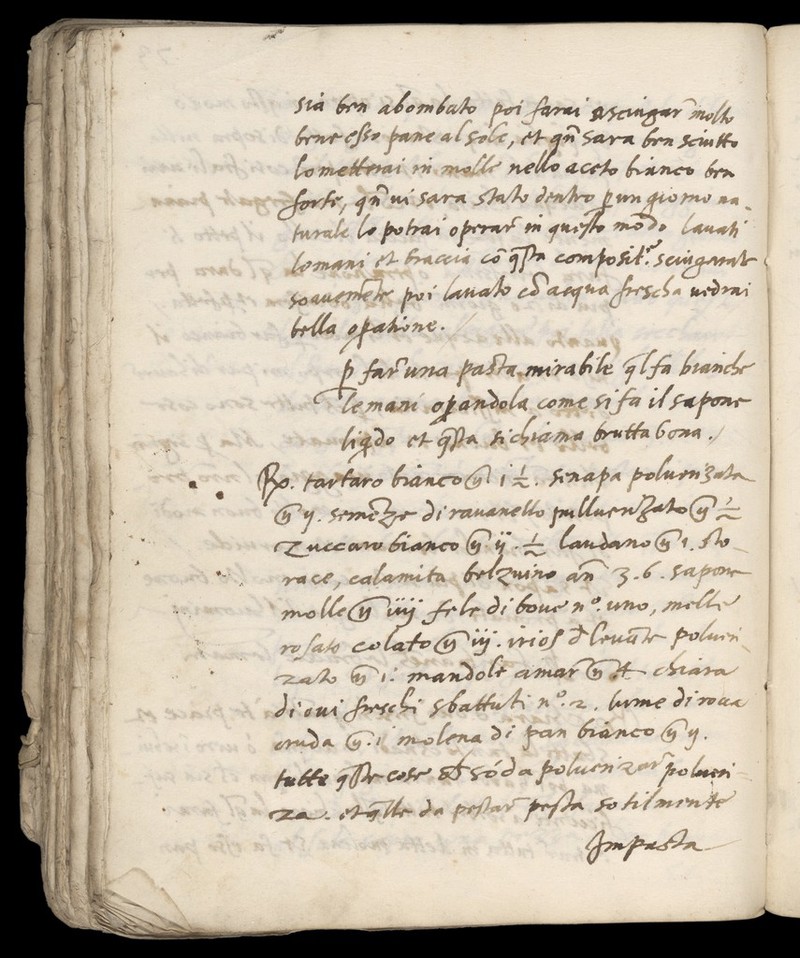 sia ben abombato poi farai asciugar̃ molto
bene esso pane al sole, et qñ sara ben sciutto
lo metterai in molle nello aceto bianco ben
forte, qñ vi sara stato dentro p un giorno na-
turale lo potrai operar̃ in questo modo lavati
le mani et braccia cõ q̃sta composit.e sciugarale
soavemẽte poi lavato cõ acqua frescha vedrai
bella op̃atione.
p far̃ una pasta mirabile q̃l fa bianche
le mani op̃andola come si fa il sapone
liq̃do et q̃sta si chiama brutta bona.
Rx. tartaro bianco ℥ i ½. senapa polverizata
℥ ij. semẽze di ravanello pulluerizato ℥ ½
Zuccaro bianco ℥ ij. ½ laudano ℥ 1. sto-
race, calamita belzuino añ ʒ. 6. sapone
molle ℥ iiij fele di bove nº. uno, melle
rosato colato ℥ iij. irios d̃ levãte polveri-
zato ℥ 1. mandole amar̃ ℥ chiara
di ovi freschi sbattuti nº. 2. lume di roca
cruda ℥. i molena di pan bianco ℥ ij.
tutte q̃ste cose ch̃ sõ da polverizar̃ polveri-
za. et q̃lle da pestar̃ pesta sotilmente
Impasta